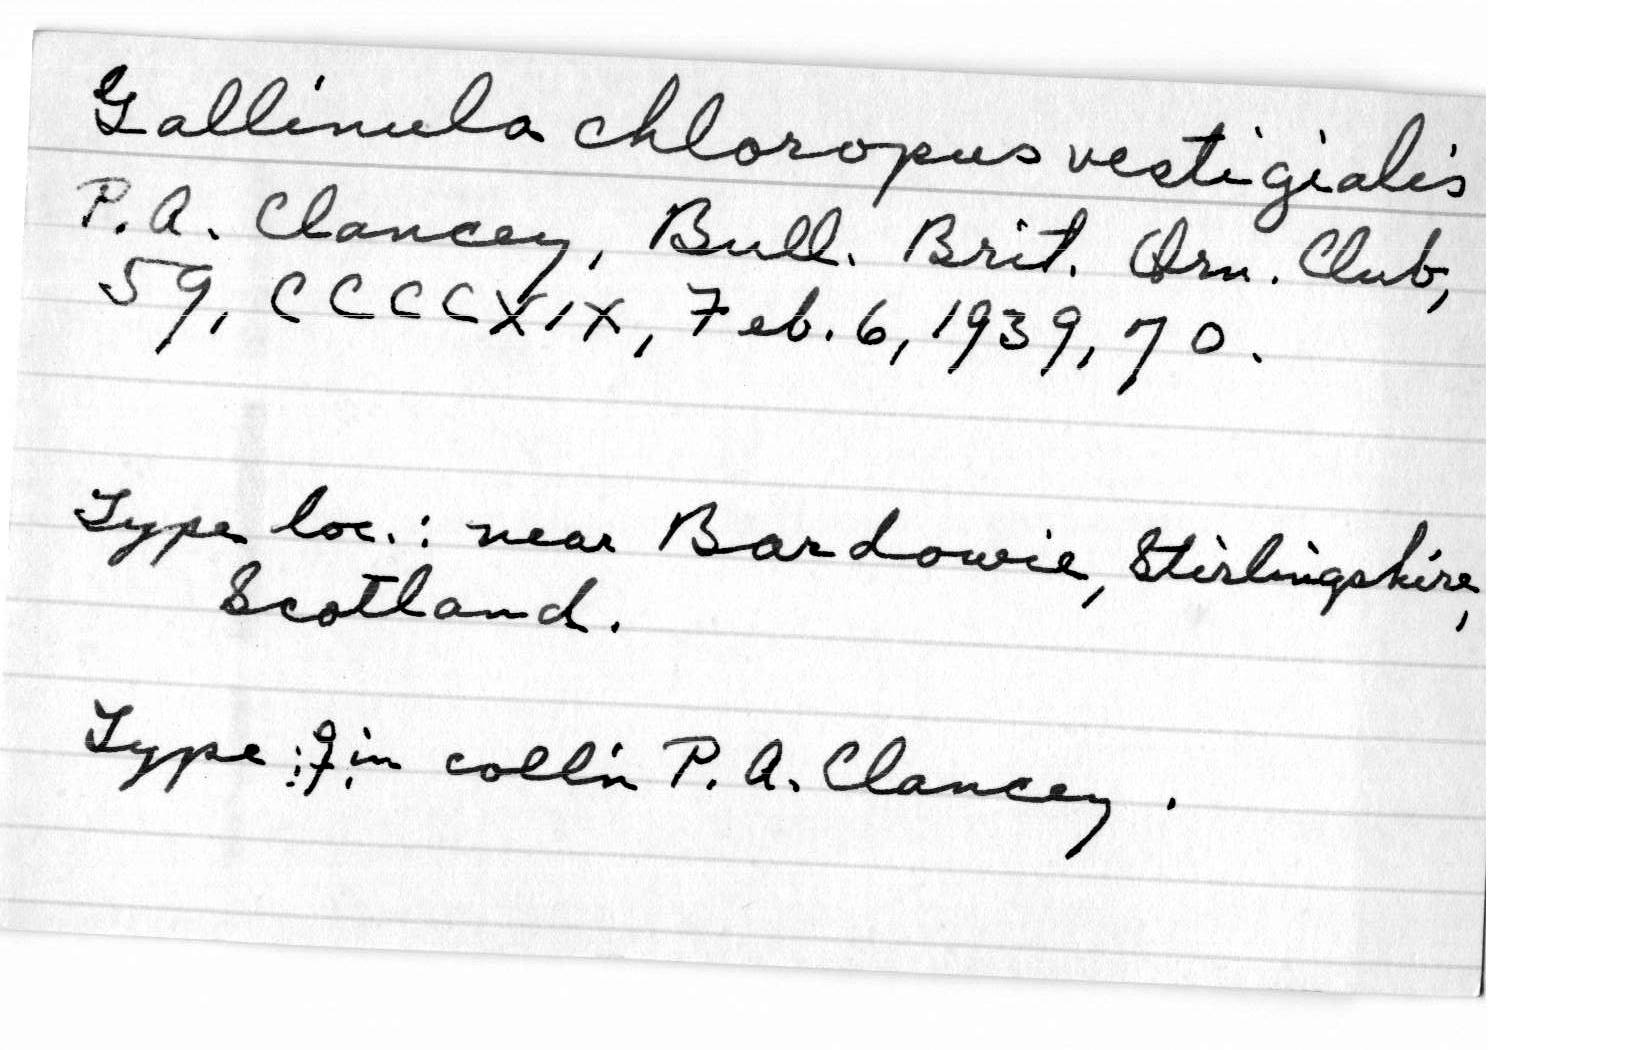 Gallinula chloropus vestigialis
P. A. Clancey, Bull. Brit. Orn. Club,
59, CCCCXIX, Feb. 6, 1939, 70.
Type loc.: near Bardowie, Stirlingshire,
Scotland.
Type: ♀ in coll'n P. A. Clancey.